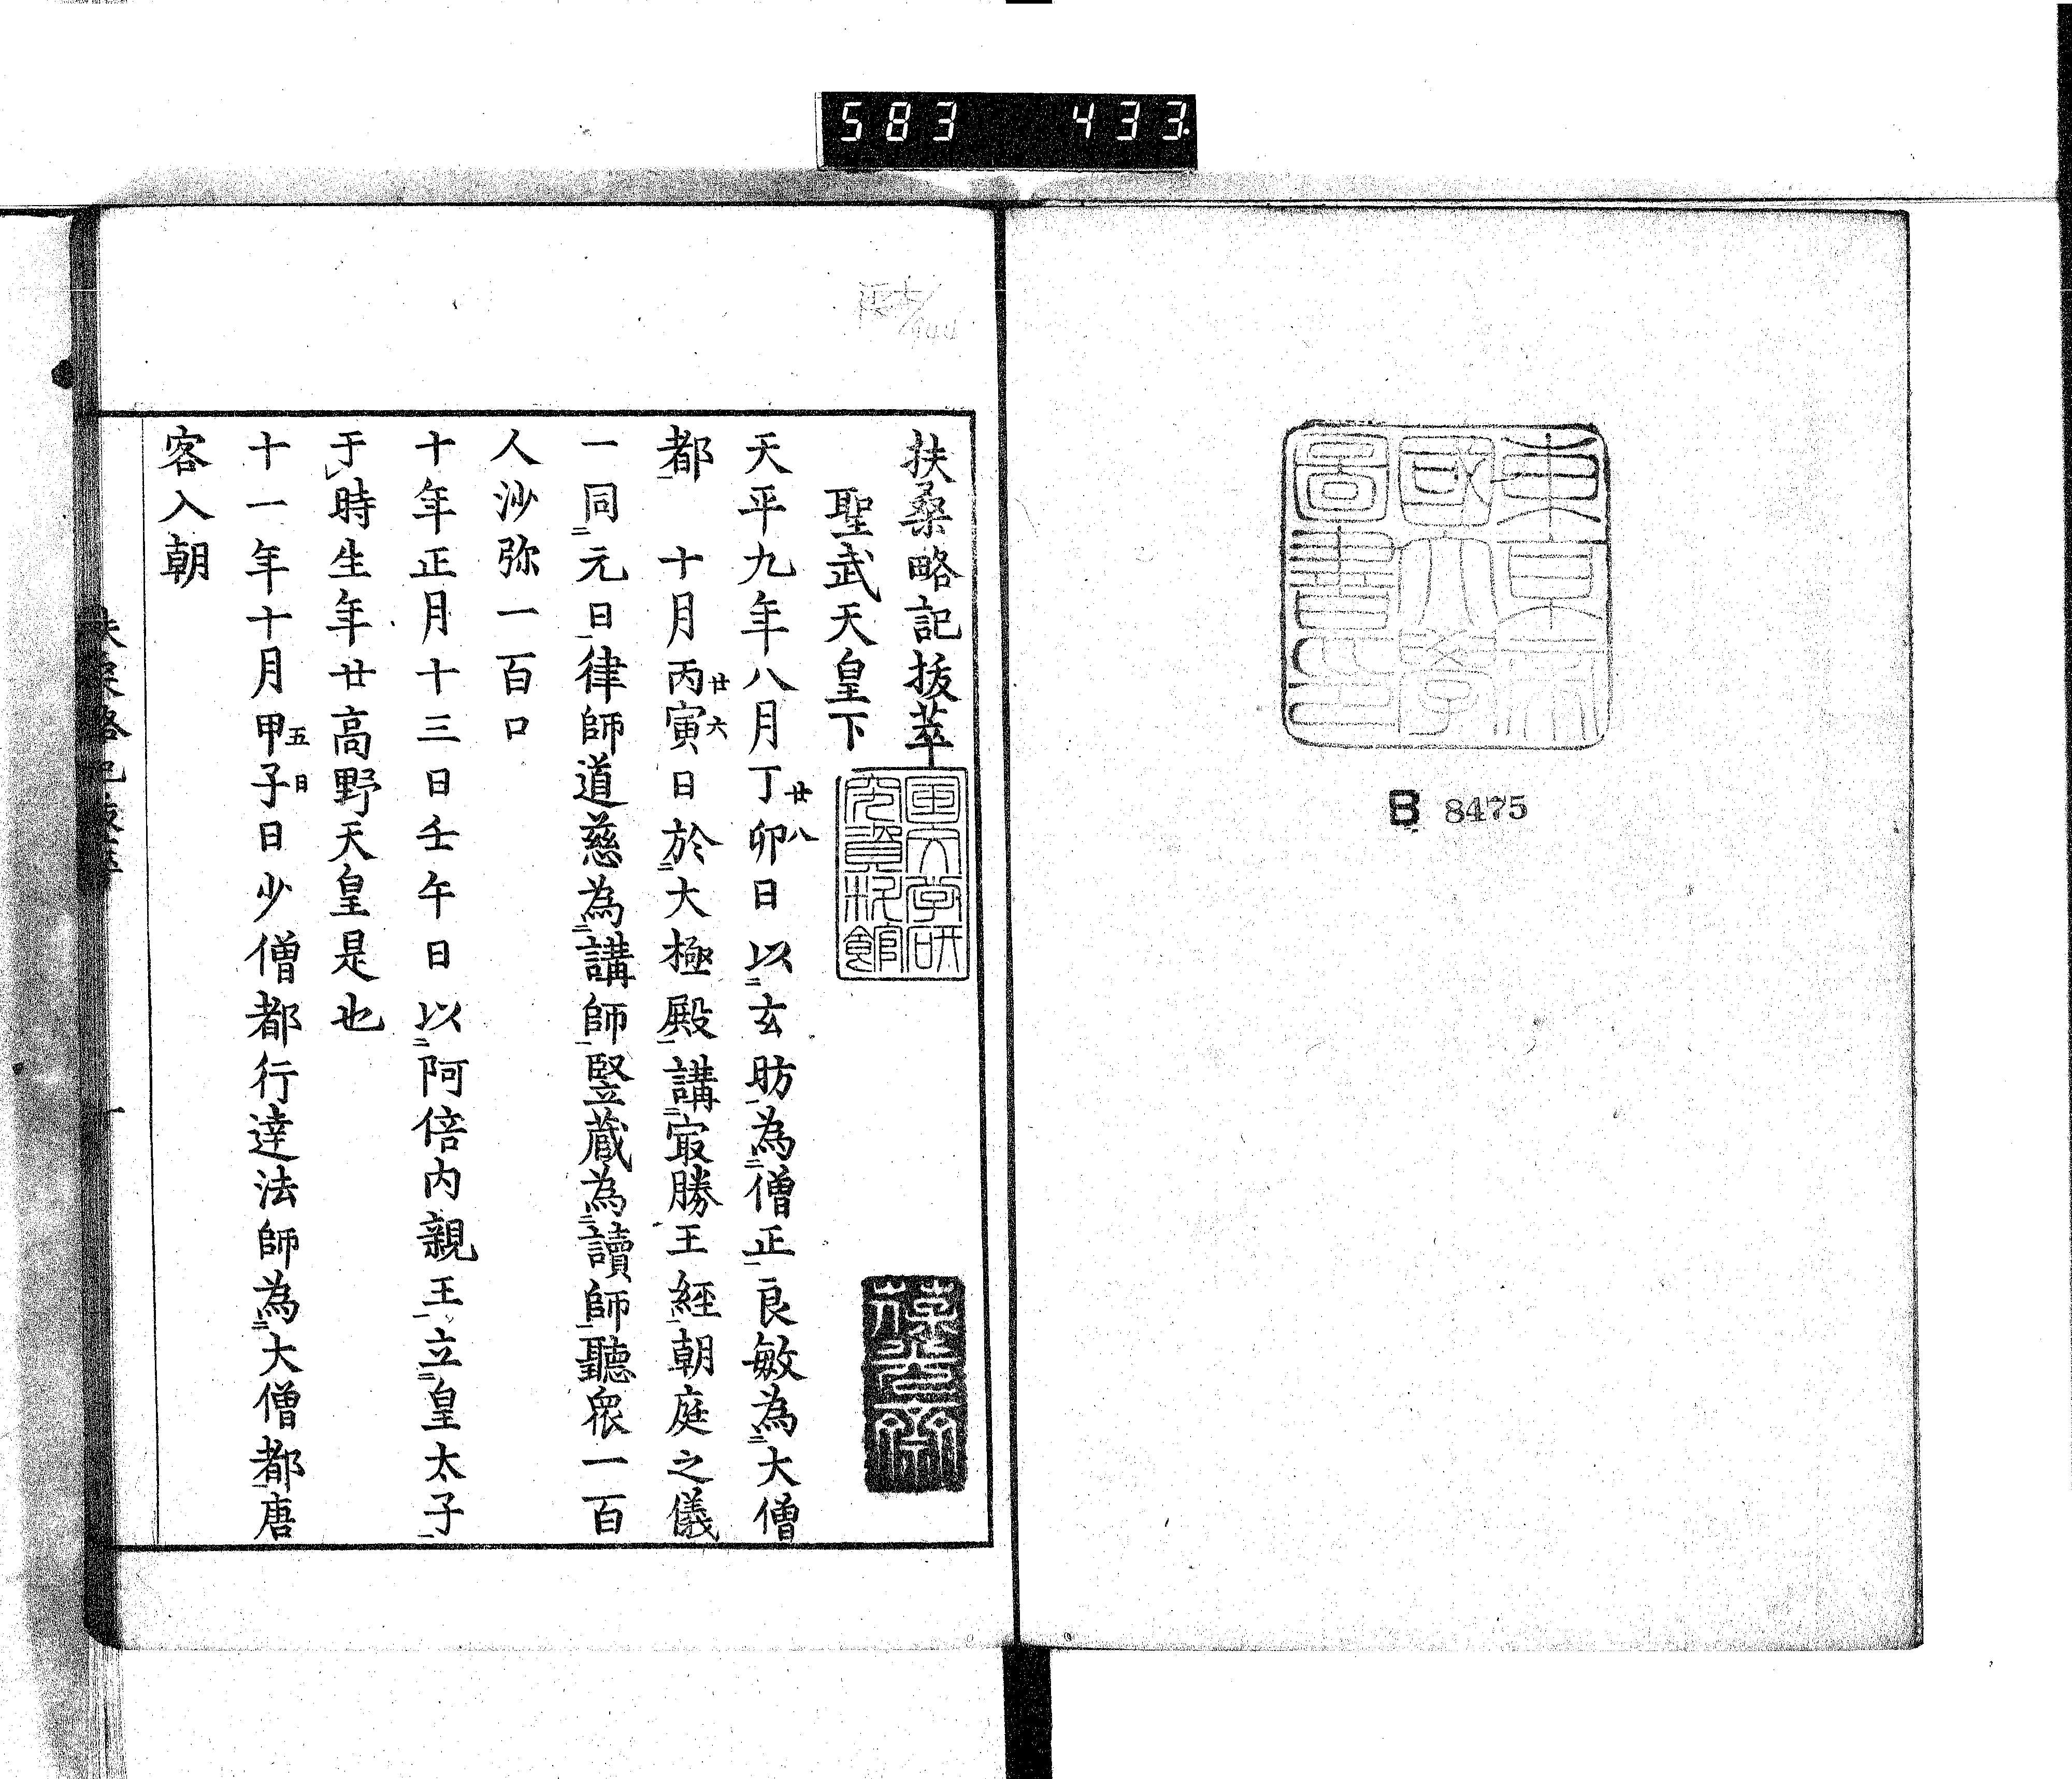 583 433
東京帝
國大學
圖書印
B 8475
扶桑略記抜萃
国文学研
究資料館
聖武天皇下
天平九年八月丁卯日以玄昉為僧正良敏為大僧
廿八
都 十月丙寅日於大極殿講㝡勝王経朝庭之儀
廿六
一同元日律師道慈為講師竪蔵為讀師聽衆一百
人沙弥一百口
十年正月十三日壬午日以阿倍内親王立皇太子
于時生年廿高野天皇是也
十一年十月甲子日少僧都行達法師為大僧都唐
五日
客入朝
扶桑略記抜萃 一